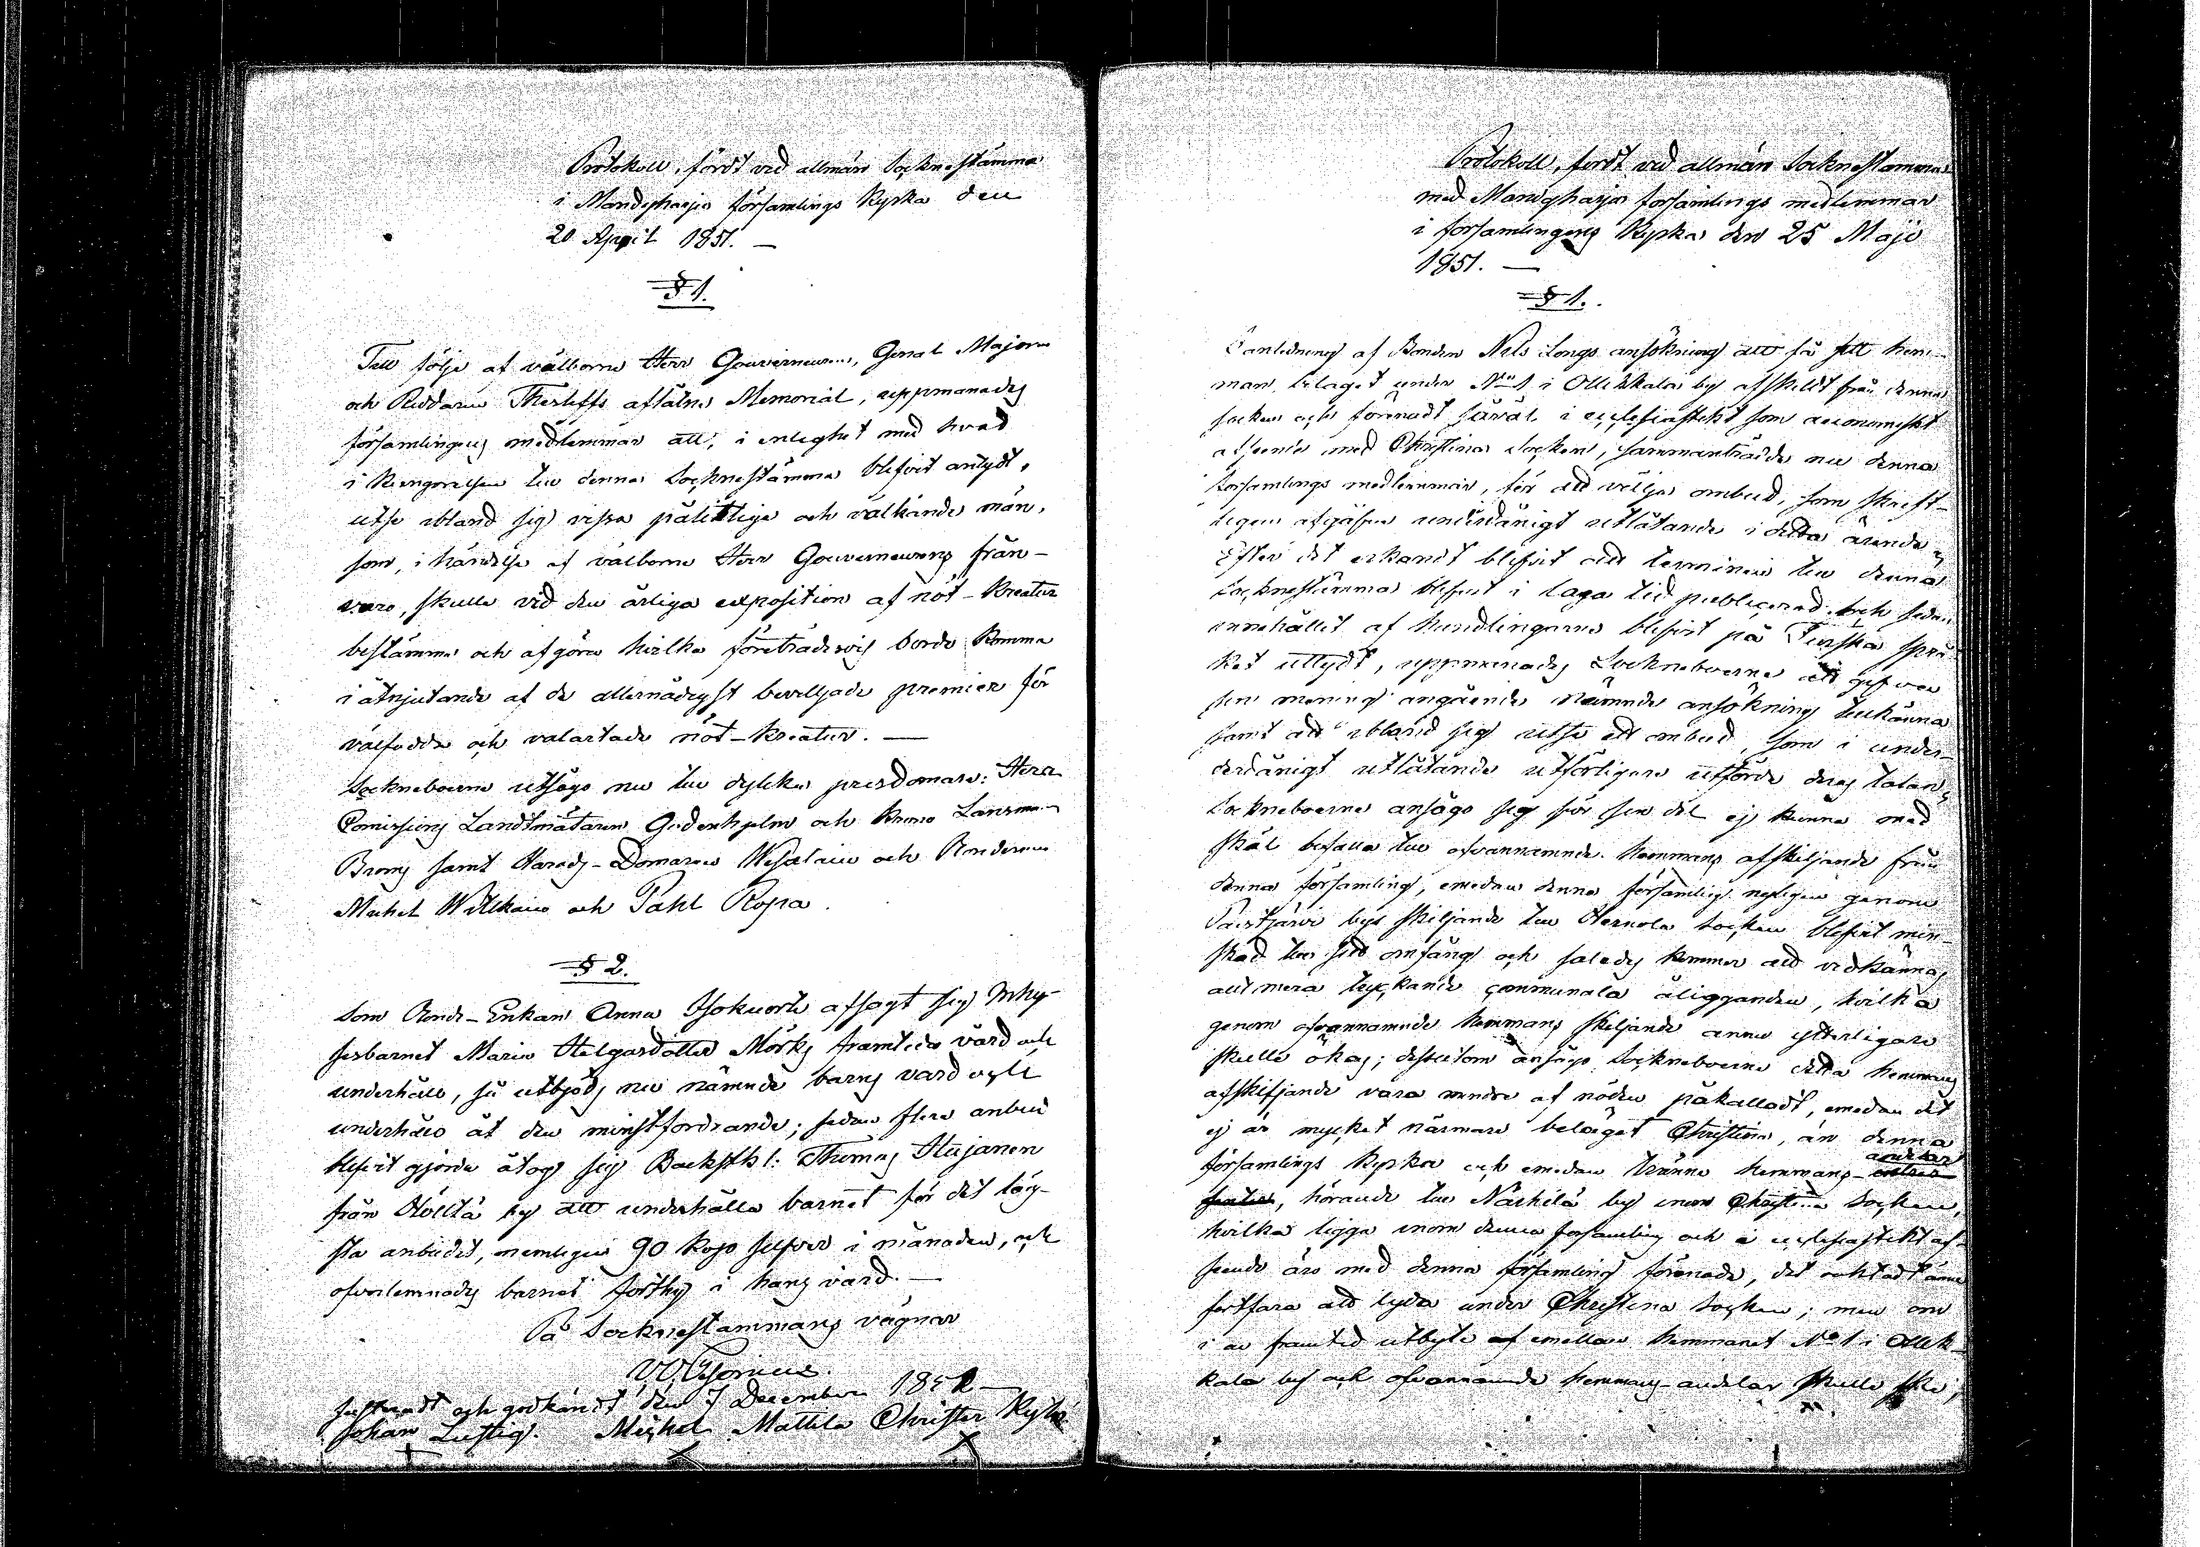 Protokoll, fördt vid allmän Socknestämma
i Mändyharju församlings Kyrka den
20 April 1851. —
§ 1.
Till följe af välborne Herr Gouverneuren, General Majoren
och Riddaren Thesleffs aflåtne Memorial, uppmanades
församlingens medlemmar att, i enlighet med hvad
i kungörelsen till denna Sockne stämma blifvit antydt,
utse ibland sig vissa pålitlige och välkände män,
som, i händelse af välborne Herr Gouverneurens från-
varo, skulle vid den årliga exposition af nöt-kreatur
bestämma och afgöra hvilka företrädesvis borde komma
i åtnjutande af de allernådigst beviljade premier för
välfödda och valartade nöt-kreatur. —
Sockneboerne utsågo nu till dylika prisdomare: Herr
Comissions Landtmätaren Gadenhjelm och Krono Länsman
Broms samt Härads-Domaren Wesalain och Bönderne
Michel Wilkain och Påhl Ropa.
§ 2.
Som Bonde-Enkan Anna Isokuorti afsagt sig Inhy-
sesbarnet Maria Helgasdotter Mörks framtida vård och
underhåll, så utbjöds nu nämnde barns vård och
underhåll åt den minstfordrande; sedan flera anbud
blifvit gjorde åtog sig Backsth: Thomas Hujanen
från Höltta by att underhålla barnet för det läg-
sta anbudet, nemligen 90 kop silfver i månaden, och
öfverlemnades barnet förthy i hans vård. —
På Sockne stämmans vägnar
Justeradt och godkändt den 7 December 1851
Johan Lustig. Michel Mattila Christer Kyttä
Protokoll, fördt vid allmän Sockne stämma
med Mändyharju församlings medlemmar
i församlingens Kyrka den 25 Maji
1851. —
§ 1.
I anledning af Bonden Nils Longs ansökning att få sitt hem-
man belaget under No 1 i Ollikkala by afskildt från denna
socken och förenadt såväl i ecclesiastikt som oeconomiskt
afseende med Christina socken, sammanträdde nu denna
församlings medlemmar, för att välja ombud, som skrift-
ligen afgåfve underdånigt utlåtande i detta ärende.
Efter det erkändt blifvit att terminen till denna
Sockne stämma blifvit i laga tid publicerad och sedan
innehållet af handlingarne blifvit på Finska språ-
ket uttydt, uppmanades Sockneboerne att gifva
sin mening angående nämnde ansökning tillkänna
samt att ibland sig utse ett ombud, som i under-
derdånigt utlåtande utförligare utförde deras talan.
Sockneboerne ansågo sig för sin del ej kunna med
skäl bifalla till ofvannämnde hemmans afskiljande från
denna församling, emedan denna församling nyligen genom
Paistjärvi bys skiljande till Hartola socken blifvit min-
skad till sitt omfång och således kommer att vidkännas
allt mera tryckande communala åligganden, hvilka
genom ofvannämnde hemmans skiljande ännu ytterligare
skulle ökas; dessutom ansågo Sockneboerne detta hemmans
afskiljande vara mindre af nöden påkalladt, emedan det
ej är mycket närmare belaget Christina, än denna
församlings kyrka och emedan tvänne hemmans-andelar
, hörande till Närhilä by inom Christina socken,
hvilka ligga inom denna församling och i ecclesiastikt af-
seende äro med denna församling förenade, det oaktadt ännu
fortfara att lyda under Christina socken; men om
i en framtid utbyte af emellan hemmanet No 1 i Ollik-
kala by och ofvannämnde hemmans andelar skulle ske,